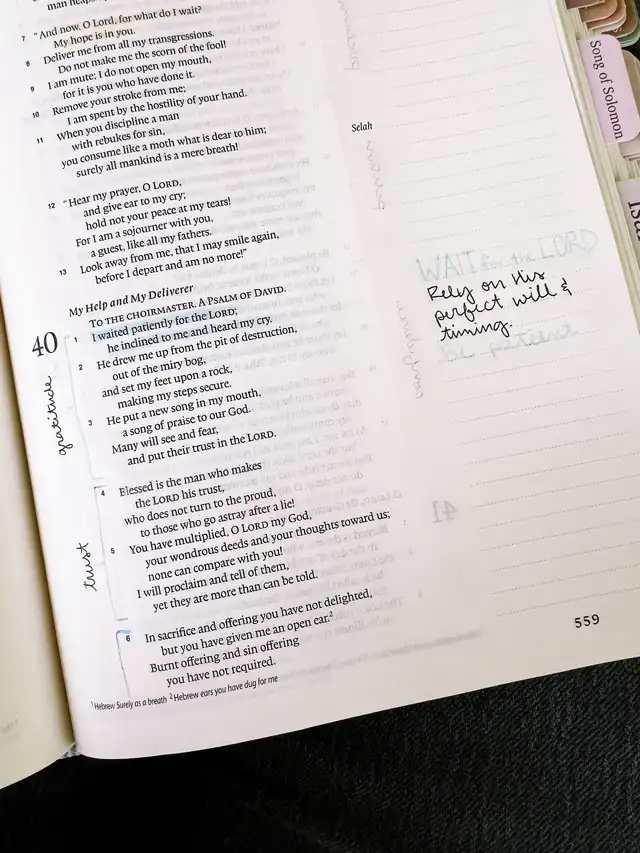 man heaps
7 "And now, O Lord, for what do I wait?
My hope is in you.
8 Deliver me from all my transgressions.
Do not make me the scorn of the fool!
9 I am mute; I do not open my mouth,
for it is you who have done it.
10 Remove your stroke from me;
I am spent by the hostility of your hand.
11 When you discipline a man
with rebukes for sin,
you consume like a moth what is dear to him;
surely all mankind is a mere breath!
Selah
12 "Hear my prayer, O LORD,
and give ear to my cry;
hold not your peace at my tears!
For I am a sojourner with you,
a guest, like all my fathers.
13 Look away from me, that I may smile again,
before I depart and am no more!"
My Help and My Deliverer
TO THE CHOIRMASTER. A PSALM OF DAVID.
40
1 I waited patiently for the LORD;
he inclined to me and heard my cry.
2 He drew me up from the pit of destruction,
out of the miry bog,
and set my feet upon a rock,
making my steps secure.
3 He put a new song in my mouth,
a song of praise to our God.
Many will see and fear,
and put their trust in the LORD.
gratitude
4 Blessed is the man who makes
the LORD his trust,
who does not turn to the proud,
to those who go astray after a lie!
5 You have multiplied, O LORD my God,
your wondrous deeds and your thoughts toward us;
none can compare with you!
I will proclaim and tell of them,
yet they are more than can be told.
trust
6 In sacrifice and offering you have not delighted,
but you have given me an open ear.2
Burnt offering and sin offering
you have not required.
1 Hebrew Surely as a breath 2 Hebrew ears you have dug for me
WAIT for the LORD
Rely on His
perfect will &
timing.
Be patient
559
Song of Solomon